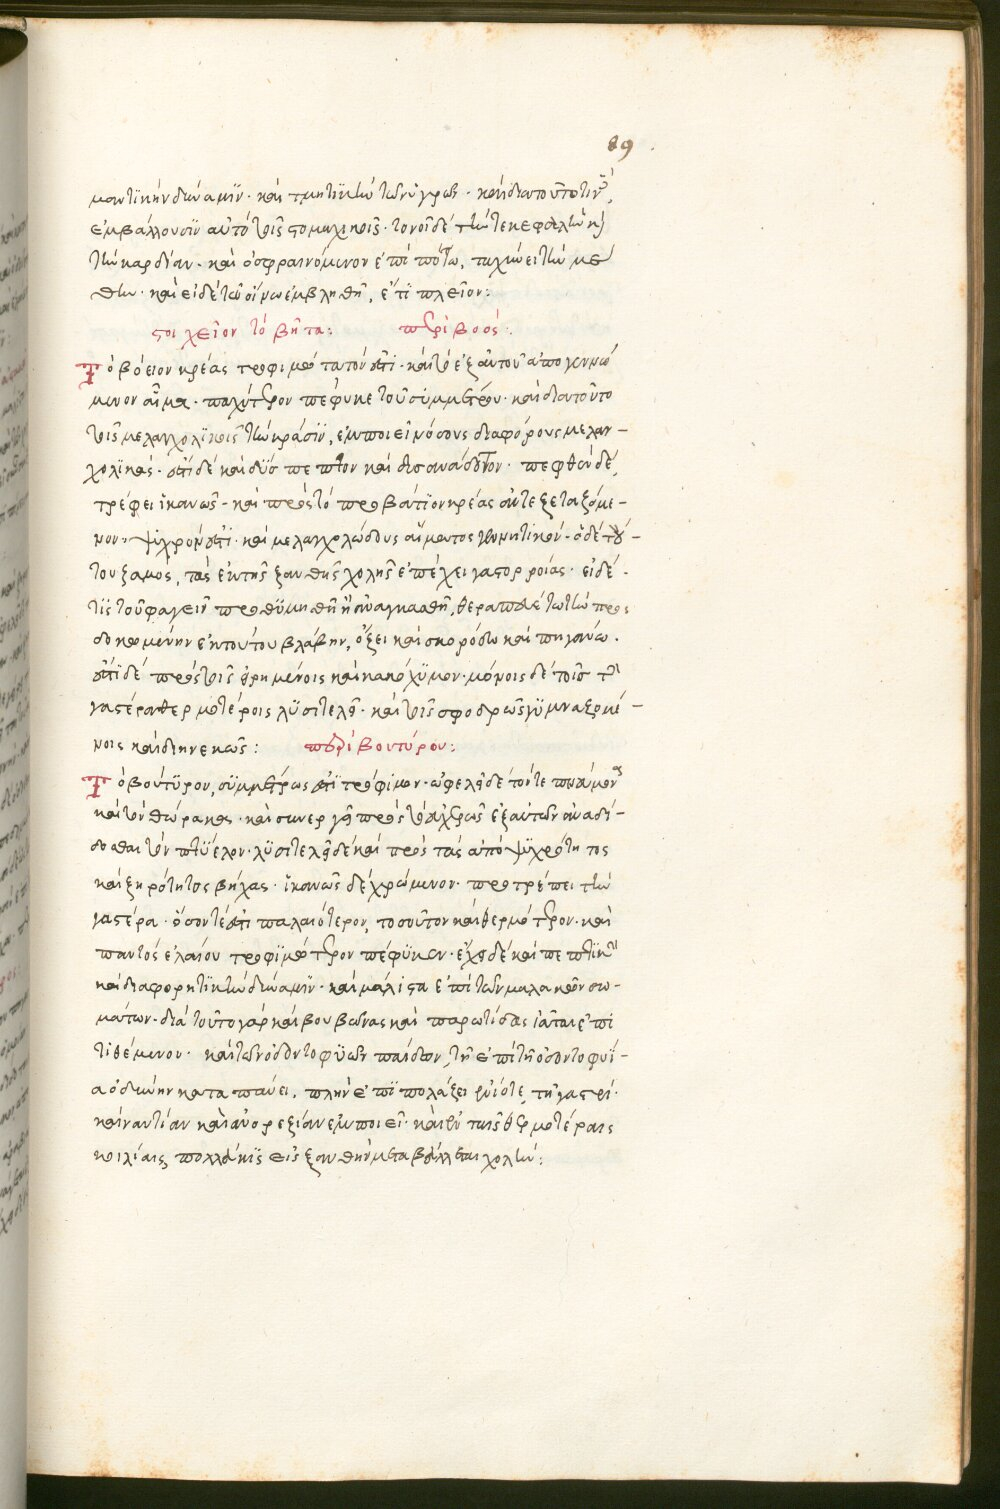 89
μαντικὴν δύναμιν· καὶ τμητικὴν τῶν ὑγρῶν· καὶ διατοῦτό τινες,
ἐμβάλλουσιν αὐτὸ τοῖς στομαχικοῖς· τονοῖ δέ τήν τε κεφαλὴν κ(αὶ)
τὴν καρδίαν· καὶ ὀσφραινόμενον ἐπὶ πότω, ταχύνει τὴν μέ
θην· καὶ εἰ δὲ τῶ οἴνω ἐμβληθῆ, ἔτι πλεῖον:
στοιχεῖον τὸ βῆτα: περὶ βοός:
Τὸ βόειον κρέας τροφιμώτατόν ἐστι· καὶ τὸ ἐξ αὐτοῦ ἀπογεννώ
μενον αἷμα· παχύτερον πέφυκε τοῦ συμμέτρου· καὶ διατοῦτο
τοῖς μελαγχολικοῖς τὴν κράσιν, ἐμποιεῖ νόσους διαφόρους μελαγ-
χολικάς· ἐστὶ δὲ καὶ δύσπεπτον καὶ δυσανάδοτον· πεφθὲν δέ,
τρέφει ἱκανῶς· καὶ πρὸς τὸ προβάτιον κρέας ἀντεξεταζόμε-
νον, ψυχρόν ἐστι· καὶ μελαγχολώδους αἵματος γεννητικόν· ὁ δὲ τού-
του ζωμός, τὰς ἐκ τῆς ξανθῆς χολῆς ἐπέχει γαστορροίας· εἰ δέ
τις τοῦ φαγεῖν προθυμηθῆ ἢ ἀναγκασθῆ, θεραπευέτω τὴν προσ
δοκωμένην ἐκ τούτου βλάβην, ὄξει καὶ σκορόδω καὶ πηγάνω·
ἐστὶ δὲ πρὸς τοῖς εἰρημένοις καὶ κακόχυμον· μόνοις δὲ τοῖς τὴν
γαστέρα θερμοτέροις λυσιτελεῖ· καὶ τοῖς σφοδρῶς γυμναζομέ-
νοις καὶ διηνεκῶς: περὶ βουτύρου:
Τὸ βούτυρον, συμμέτρως ἐστὶ τρόφιμον· ὠφελεῖ δὲ τόν τε πνεύμονα
καὶ τὸν θώρακα· καὶ συνεργεῖ πρὸς τὸ εὐχερῶς ἐξ αὐτῶν ἀναδί-
δοσθαι τὸν πτύελον· λυσιτελεῖ δὲ καὶ πρὸς τὰς ἀπὸ ψυχρότητος
καὶ ξηρότητος βῆχας· ἱκανῶς δὲ χρώμενον· προτρέπει τὴν
γαστέρα· ὅσον τέ ἐστι παλαιότερον, τοσοῦτον καὶ θερμότερον· καὶ
παντὸς ἐλαίου τροφιμώτερον πέφυκεν· ἔχει δὲ καὶ πεπτικὴν
καὶ διαφορητικὴν δύναμιν· καὶ μάλιστα ἐπὶ τῶν μαλακῶν σω-
μάτων· διὰ τοῦτο γὰρ καὶ βουβῶνας καὶ παρωτίδας ἰᾶται ἐπι
τιθέμενον· καὶ τῶν ὀδοντοφυῶν παίδων, τὴν ἐπὶ τῆ ὀδοντοφυΐ-
α ὀδύνην καταπαύει. πλὴν ἐπιπολάζει ἐνίοτε τῆ γαστρί·
καὶ ναυτίαν καὶ ἀνορεξίαν ἐμποιεῖ· καὶ ἐν ταῖς θερμοτέραις
κοιλίαις, πολλάκις εἰς ξανθὴν μεταβάλλεται χολήν: